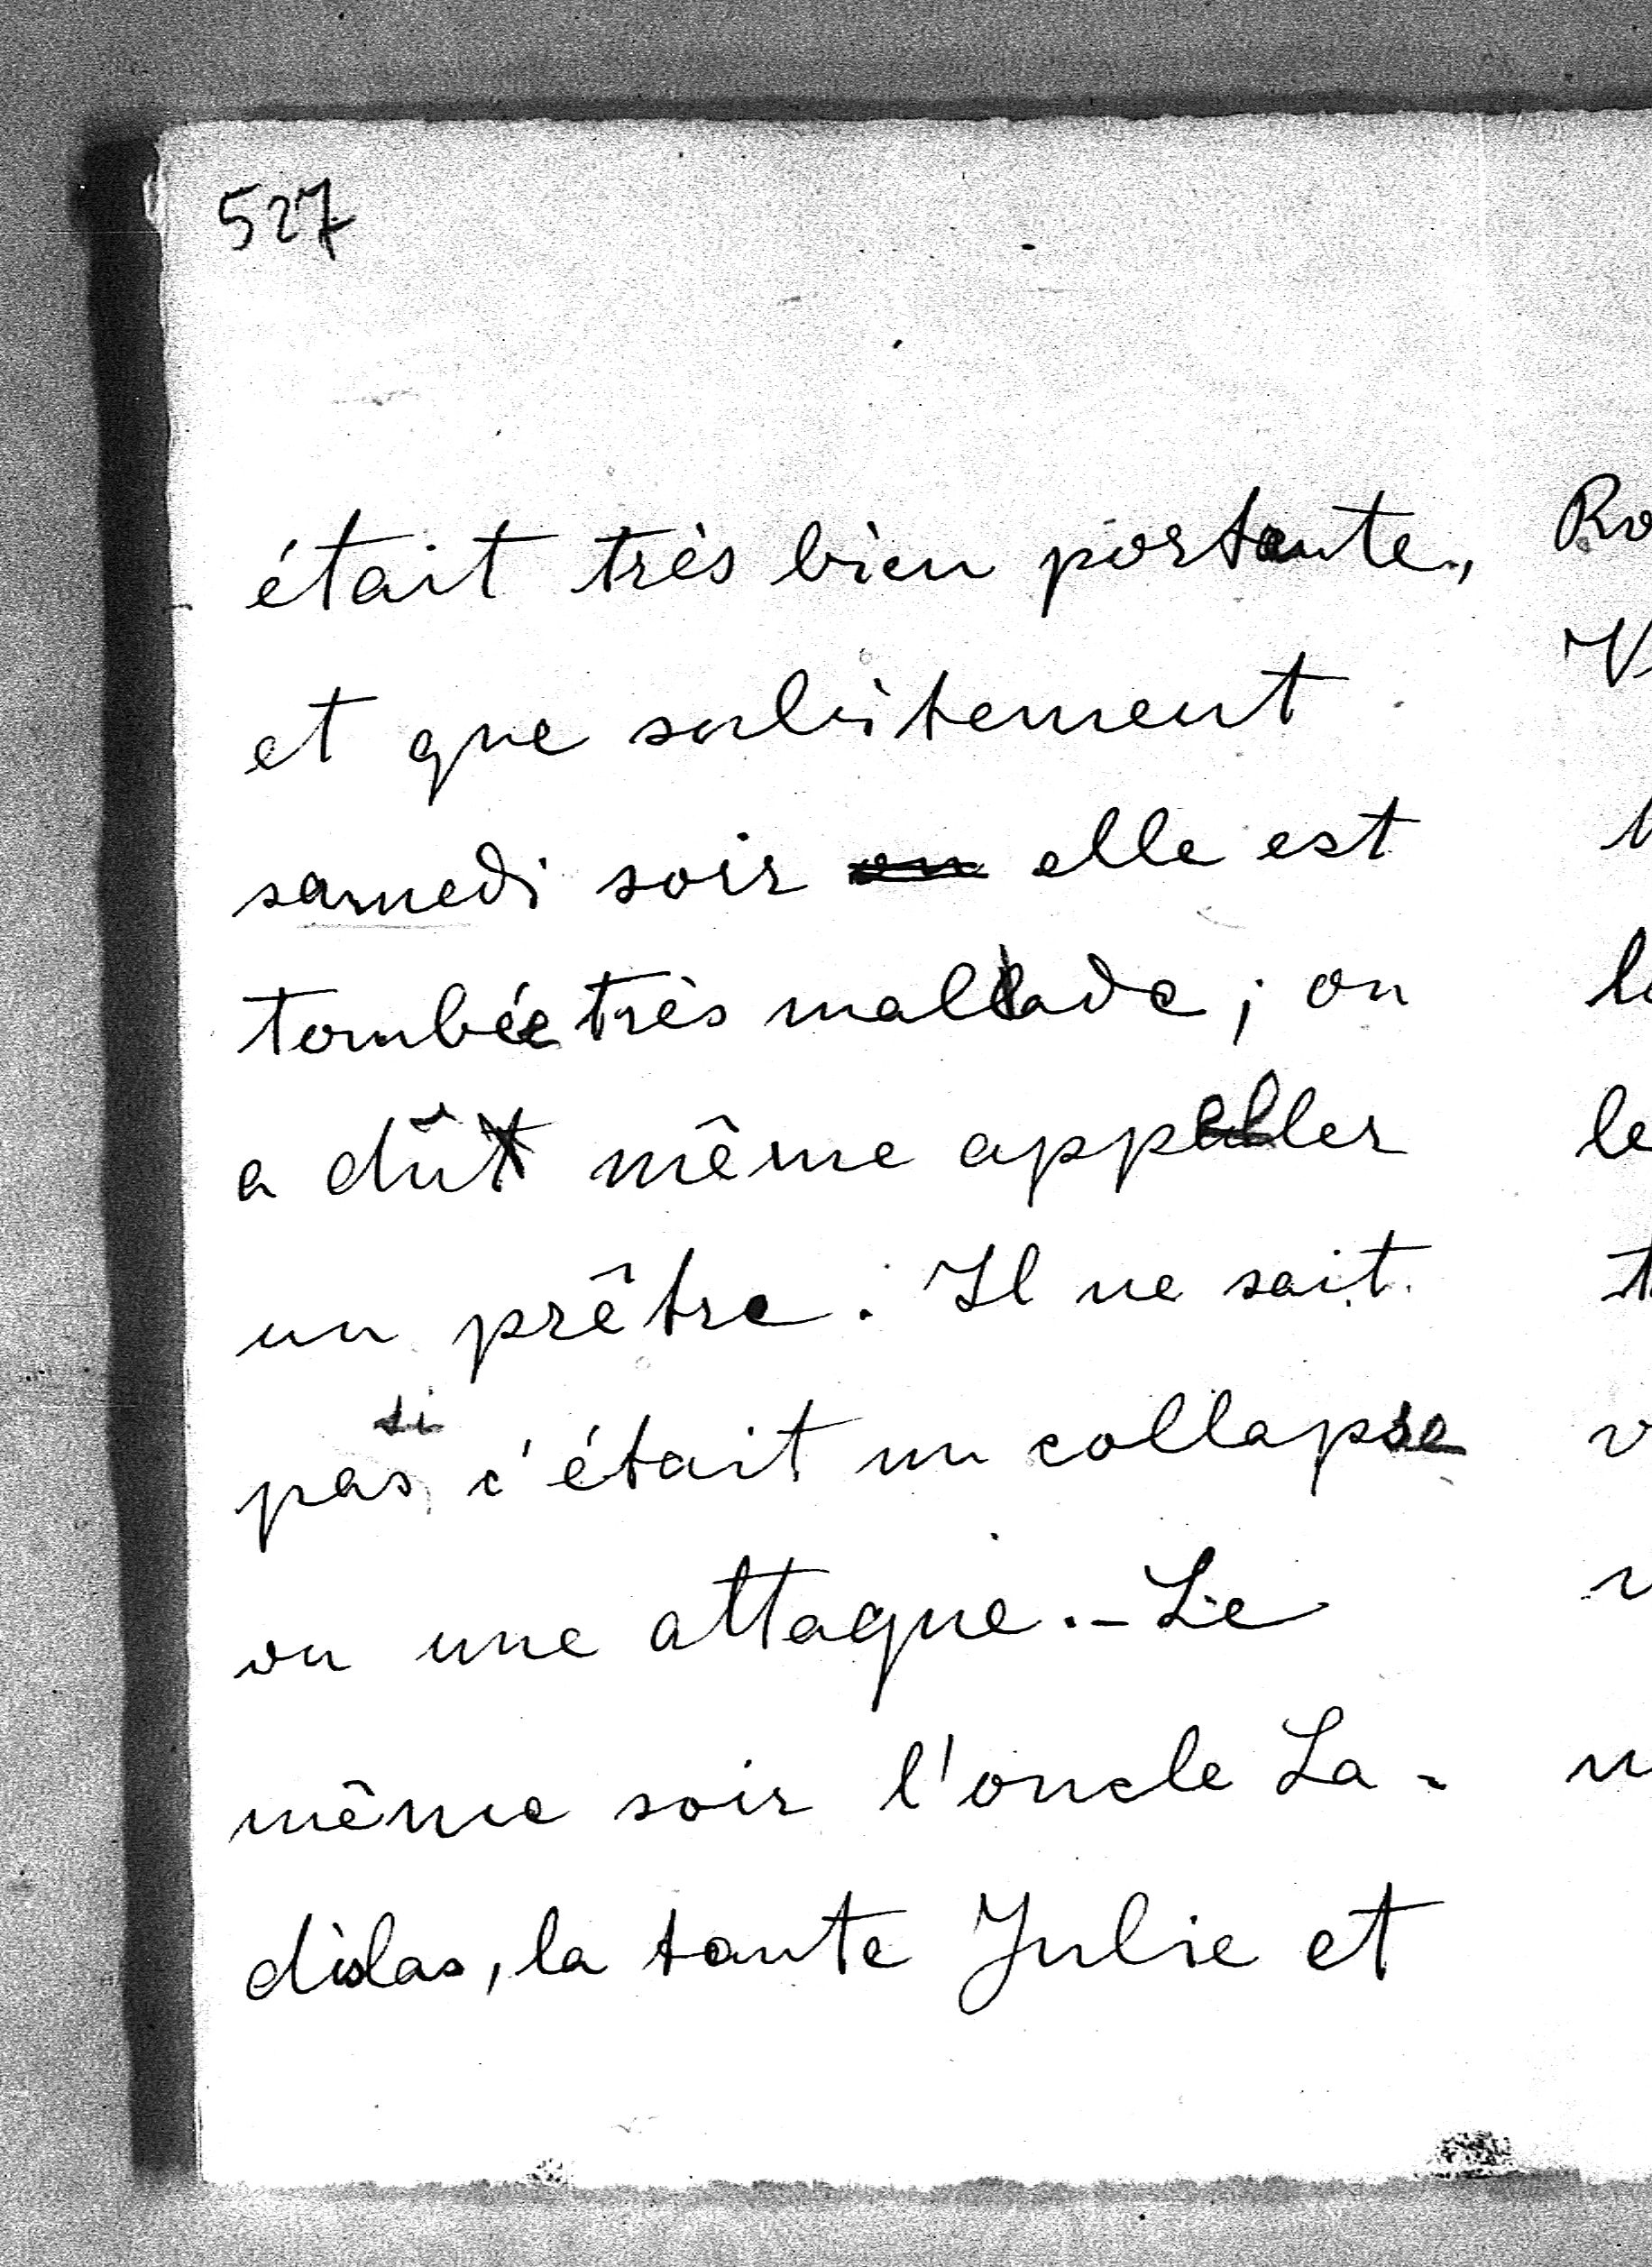 527
était très bien portante,
et que subitement
samedi soir on elle est
tombée très malade ; on
a dû même appeller
un prêtre. Il ne sait
pas si c'était un collapse
ou une attaque. - Le
même soir l'oncle La=
dislas, la tante Julie et